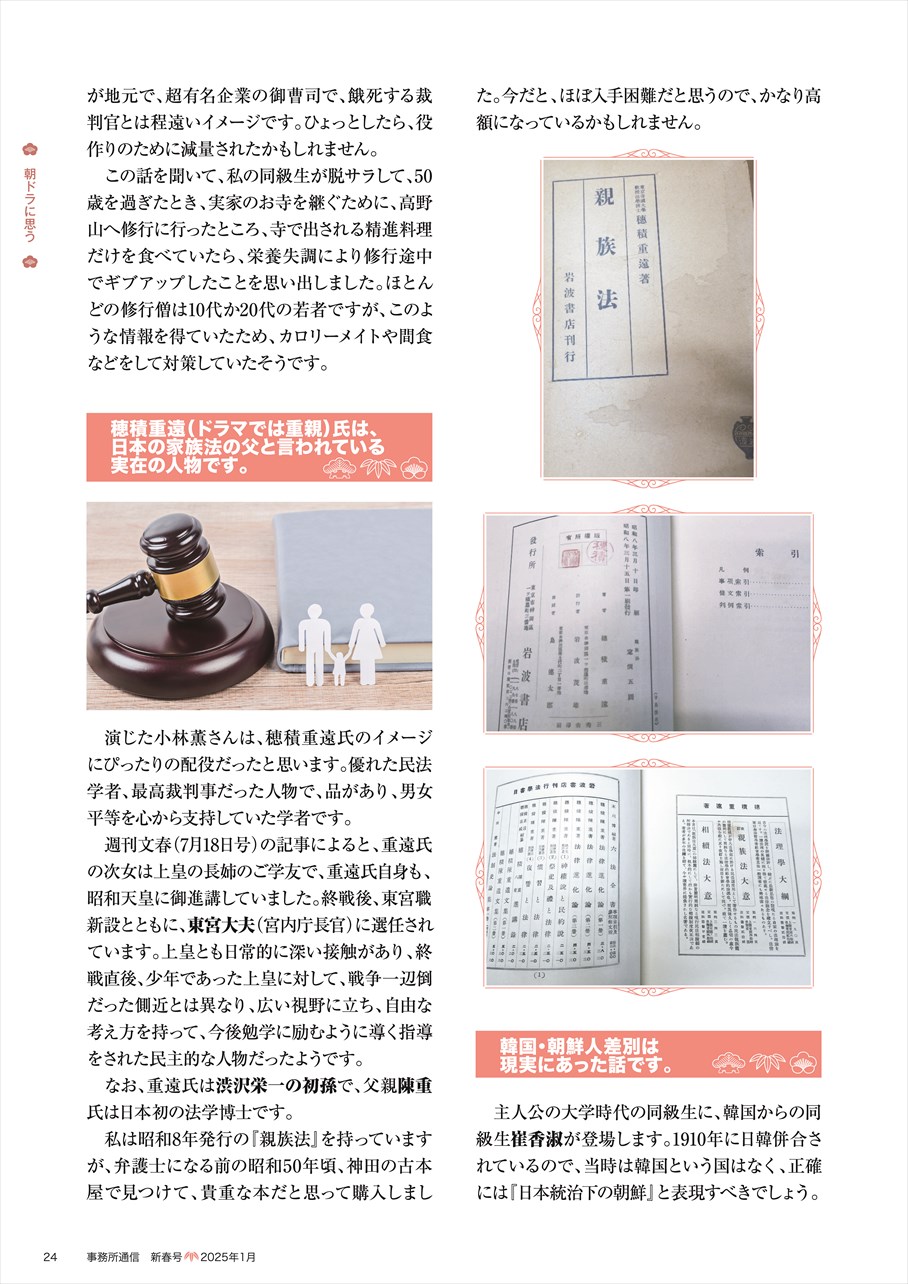 朝ドラに思う
が地元で、超有名企業の御曹司で、餓死する裁
判官とは程遠いイメージです。ひょっとしたら、役
作りのために減量されたかもしれません。
この話を聞いて、私の同級生が脱サラして、50
歳を過ぎたとき、実家のお寺を継ぐために、高野
山へ修行に行ったところ、寺で出される精進料理
だけを食べていたら、栄養失調により修行途中
でギブアップしたことを思い出しました。ほとん
どの修行僧は10代か20代の若者ですが、このよ
うな情報を得ていたため、カロリーメイトや間食
などをして対策していたそうです。
穂積重遠(ドラマでは重親)氏は、
日本の家族法の父と言われている
実在の人物です。
演じた小林薫さんは、穂積重遠氏のイメージ
にぴったりの配役だったと思います。優れた民法
学者、最高裁判事だった人物で、品があり、男女
平等を心から支持していた学者です。
週刊文春(7月18日号)の記事によると、重遠氏
の次女は上皇の長姉のご学友で、重遠氏自身も、
昭和天皇に御進講していました。終戦後、東宮職
新設とともに、東宮大夫(宮内庁長官)に選任され
ています。上皇とも日常的に深い接触があり、終
戦直後、少年であった上皇に対して、戦争一辺倒
だった側近とは異なり、広い視野に立ち、自由な
考え方を持って、今後勉学に励むように導く指導
をされた民主的な人物だったようです。
なお、重遠氏は渋沢栄一の初孫で、父親陳重
氏は日本初の法学博士です。
私は昭和8年発行の『親族法』を持っています
が、弁護士になる前の昭和50年頃、神田の古本
屋で見つけて、貴重な本だと思って購入しまし
た。今だと、ほぼ入手困難だと思うので、かなり高
額になっているかもしれません。
穂積重遠著
親族法
岩波書店刊行
昭和八年三月十日印刷
昭和八年三月十五日第一刷発行
發行所
岩波書店
索引
凡例
事項索引
條文索引
判例索引
穗積重遠著
法理學大綱
親族法大意
相續法大意
(1)
韓国・朝鮮人差別は
現実にあった話です。
主人公の大学時代の同級生に、韓国からの同
級生崔香淑が登場します。1910年に日韓併合さ
れているので、当時は韓国という国はなく、正確
には『日本統治下の朝鮮』と表現すべきでしょう。
24 事務所通信 新春号 2025年1月